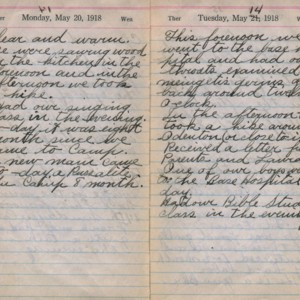 Monday, May 20, 1918
Clear and warm.
We were sawing wood
in the kitchen in the
forenoon and in the
afternoon we took
a hike.
Had our singing
class in the evening.
To-day it was eight
month since we
came to Camp.
A new man came
to-day, a Russelite,
in Camp 8 month.
14
Tuesday, May 21, 1918
This forenoon we
went to the base
pital and had our
throats examined
meningitis germs
back around two
O'clock.
In the afternoon
took a hike
Odenton or close to
Received a letter f
Parents and Laur
One of our boys
to the Base Hospital
day.
Had our Bible Stud
class in the eveni